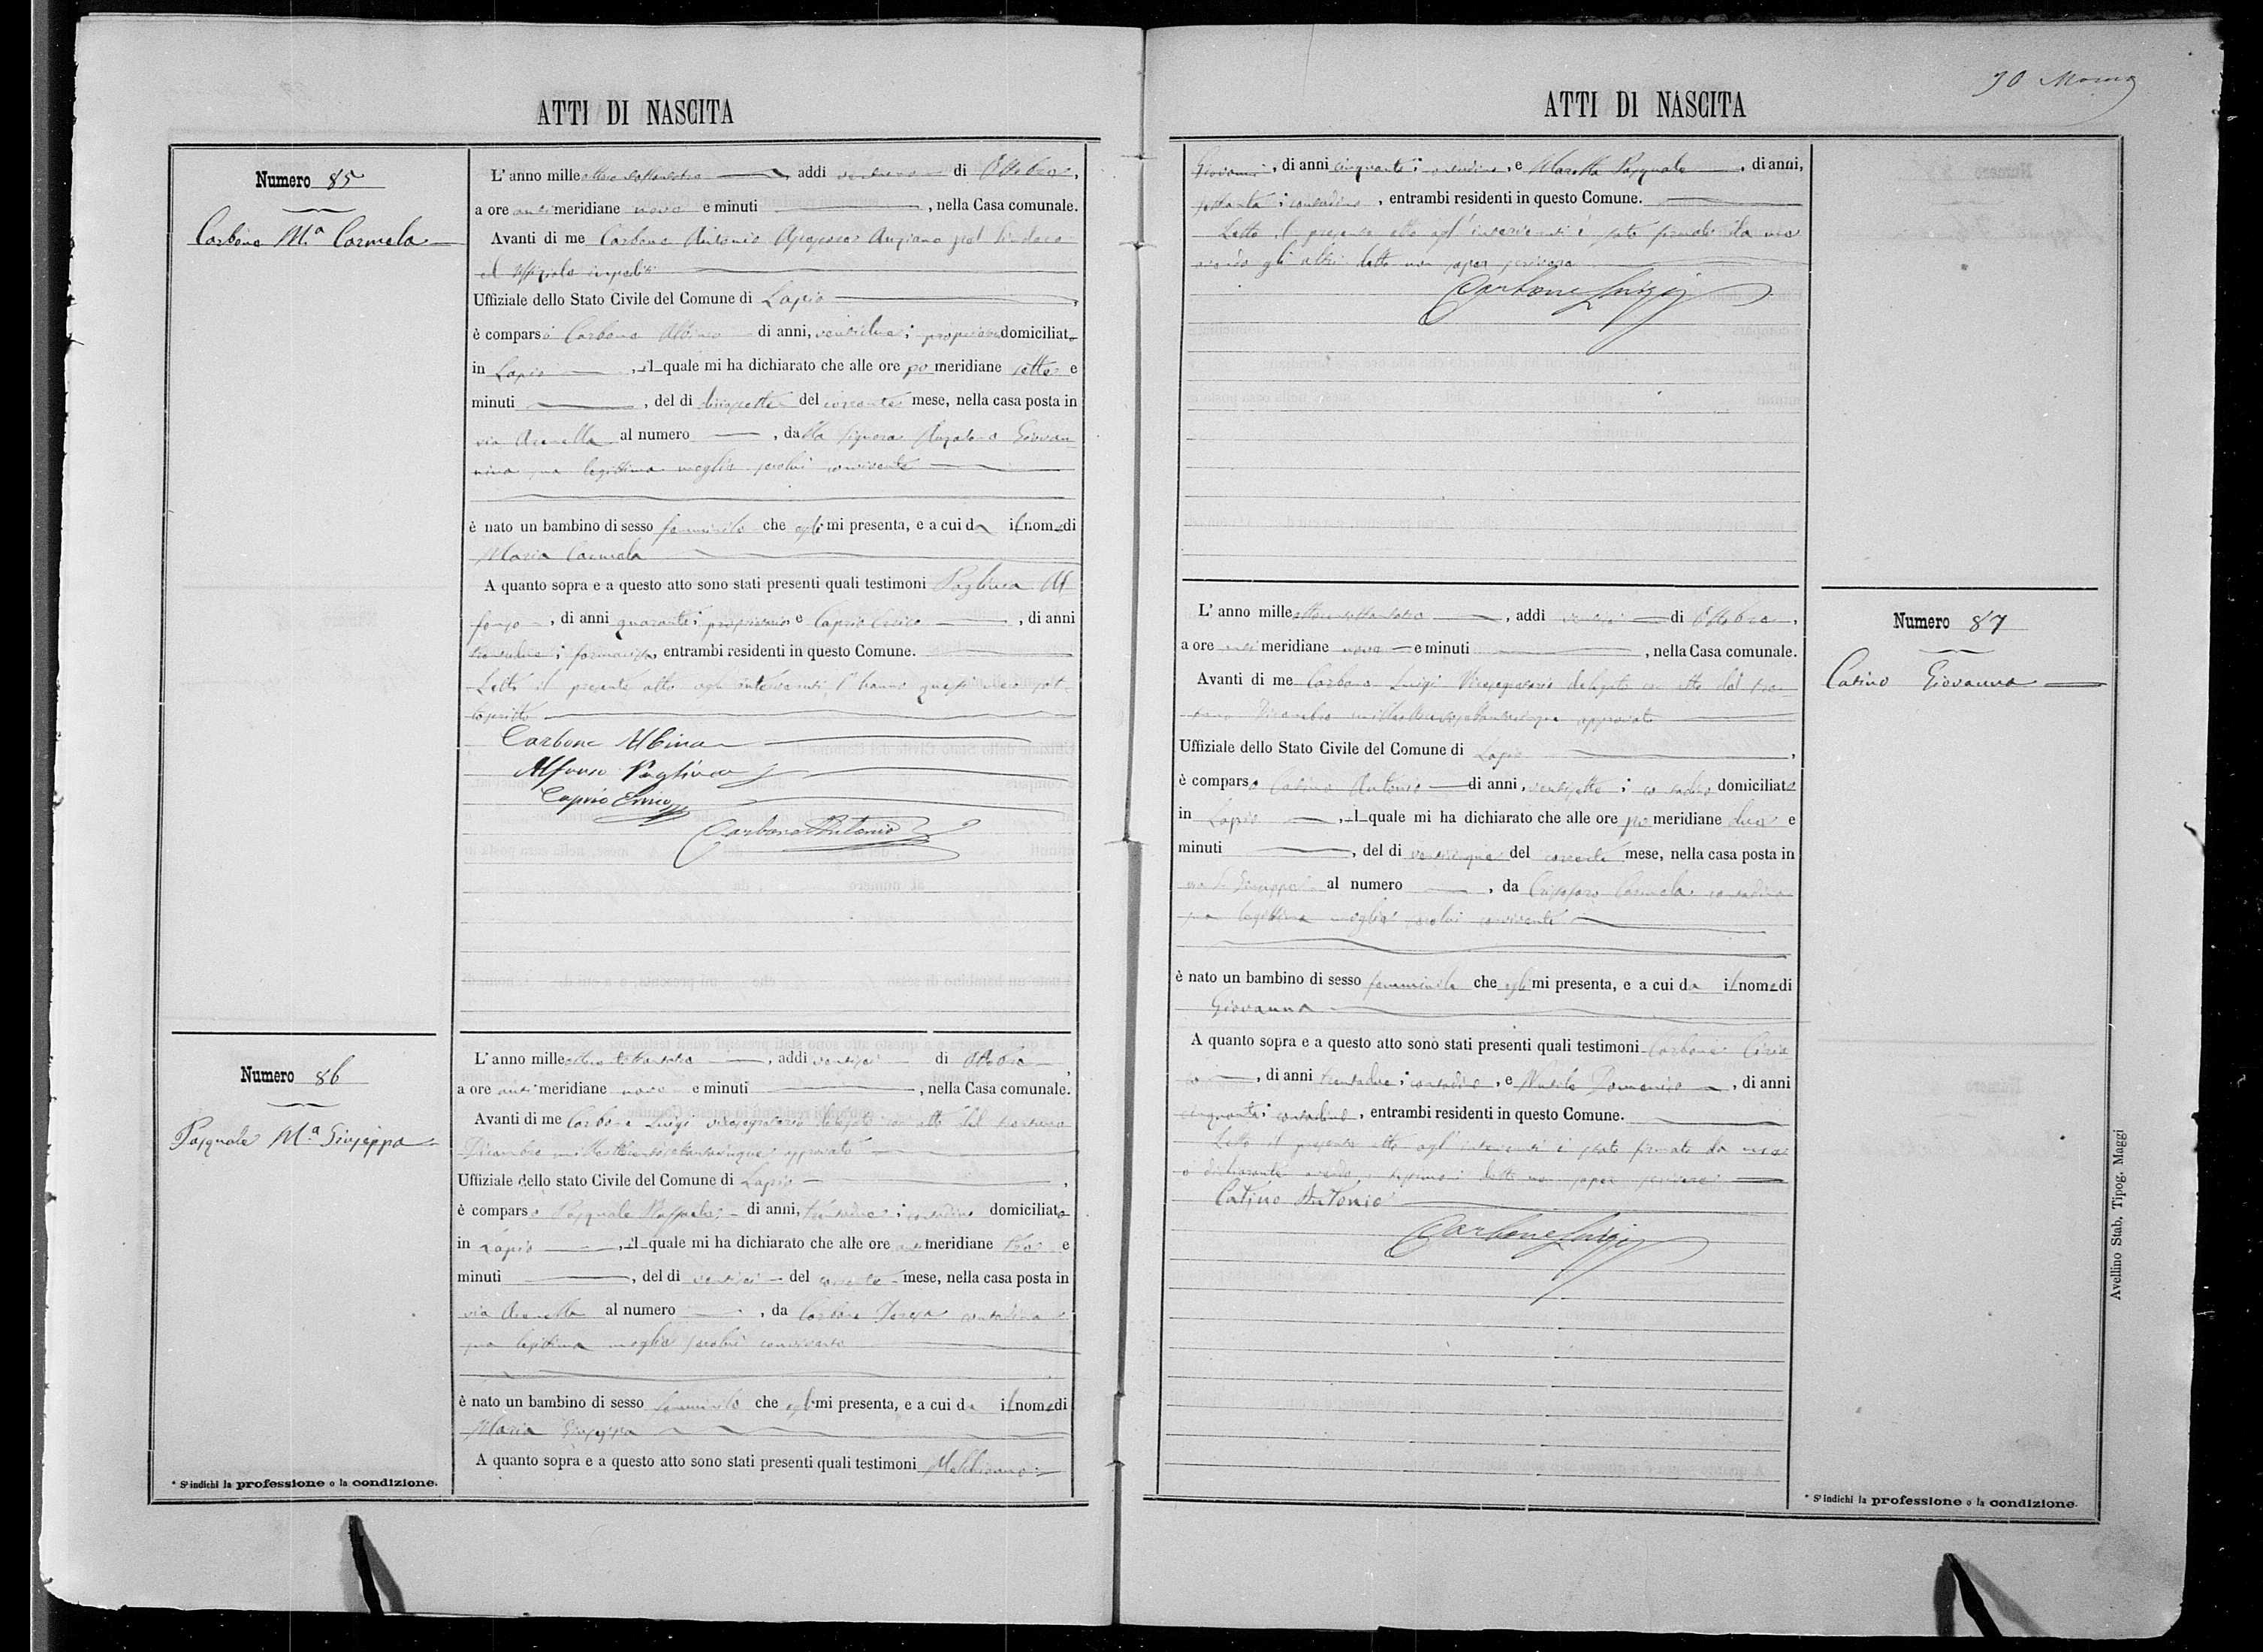 ATTI DI NASCITA
Numero 85
Carbone M.a Carmela
L'anno mille ottocento addi di Ottobre,
a ore anti meridiane nove e minuti , nella Casa comunale.
Avanti di me Carbone Antonio Assessore Anziano pel Sindaco
ed Uffiziale impediti
Uffiziale dello Stato Civile del Comune di Lapio
è comparso Carbone Albino di anni, ventidue; domiciliato
in Lapio , il quale mi ha dichiarato che alle ore po meridiane sette e
minuti , del di diciassette del corrente mese, nella casa posta in
via Arenella al numero , dalla signora Giovan
nina sua legittima moglie secolui convivente
è nato un bambino di sesso femminile che egli mi presenta, e a cui da il nome di
Maria Carmela
A quanto sopra e a questo atto sono stati presenti quali testimoni Pagliuca Al
fonso , di anni quaranta; proprietario e Caprio Errico , di anni
trentadue; farmacista, entrambi residenti in questo Comune.
Letto il presente atto agli intervenuti l'hanno questi meco sot
toscritto
Carbone Albino
Alfonso Pagliuca
Caprio Errico
Carbone Antonio
Numero 86
Pasquale M.a Giuseppa
L'anno mille addi ventisei di Ottobre,
a ore anti meridiane nove e minuti , nella Casa comunale.
Avanti di me Carbone Luigi Vicesegretario delegato con atto del
Dicembre approvato
Uffiziale dello stato Civile del Comune di Lapio ,
è comparso Pasquale Raffaele, di anni, trentadue; contadino domiciliato
in Lapio , il quale mi ha dichiarato che alle ore anti meridiane tre e
minuti , del di ventisei del corrente mese, nella casa posta in
via Arenella al numero , da Carbone Teresa contadina
sua legittima moglie secolui convivente
è nato un bambino di sesso femminile che egli mi presenta, e a cui da il nome di
Maria Giuseppa
A quanto sopra e a questo atto sono stati presenti quali testimoni
* S'indichi la professione o la condizione.
ATTI DI NASCITA
Giovanni, di anni cinquanta; contadino, e Pasquale , di anni,
settanta; contadino, entrambi residenti in questo Comune.
Letto il presente atto agl'intervenuti è stato firmato da me
avendo gli altri detto non saper scrivere
Carbone Luigi
Numero 87
Catino Giovanna
L'anno mille , addi di Ottobre,
a ore anti meridiane nove e minuti , nella Casa comunale.
Avanti di me Carbone Luigi Vicesegretario delegato con atto del
Dicembre approvato
Uffiziale dello Stato Civile del Comune di Lapio ,
è comparso Catino Antonio di anni, ventisette; contadino domiciliato
in Lapio , il quale mi ha dichiarato che alle ore po meridiane due e
minuti , del di venticinque del corrente mese, nella casa posta in
via S. Giuseppe al numero , da Carmela contadina
sua legittima moglie secolui convivente
è nato un bambino di sesso femminile che egli mi presenta, e a cui da il nome di
Giovanna
A quanto sopra e a questo atto sono stati presenti quali testimoni Carbone Ciria
co , di anni trentadue; contadino, e Domenico , di anni
cinquanta; contadino, entrambi residenti in questo Comune.
Letto il presente atto agl'intervenuti è stato firmato da me
e dichiarante avendo i testimoni detto non saper scrivere
Catino Antonio
Carbone Luigi
Avellino Stab. Tipog. Maggi
* S'indichi la professione o la condizione.